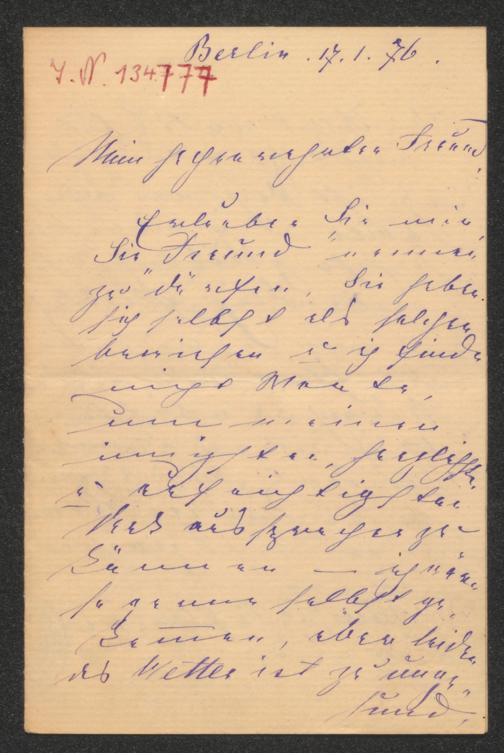 Berlin . 17. 1. 76 .
J. N. 134777
Mein hochverehrter Freund,
Erlauben Sie mir
Sie "Freund" nennen
zu dürfen, Sie haben
sich selbst als solcher
bewiesen u ich finde
nicht Worte,
um meinen
innigsten, herzlichsten
u aufrichtigsten
Dank aussprechen zu
können — ich wäre
so gerne selbst ge-
kommen, aber leider
das Wetter ist zu unge-
sund,